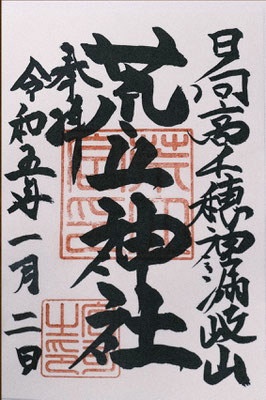 日向高千穂神漏岐山
荒立神社
奉拝
令和五年一月二日